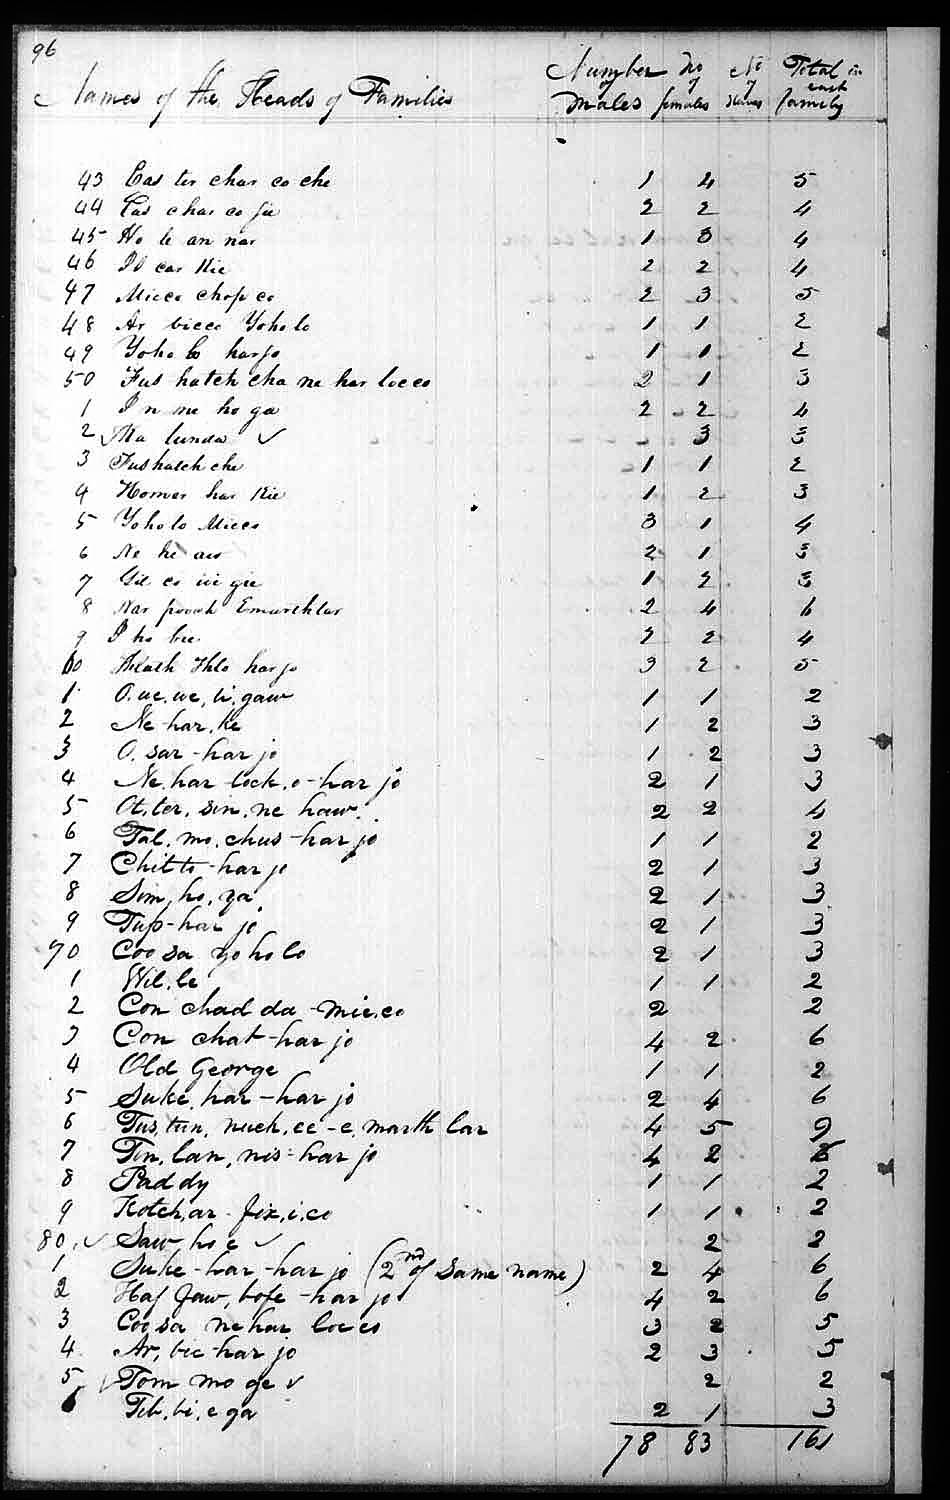 96
Names of the Heads of Families Number of males No of females No of slaves Total in each family
43 Cas ter char co che 1 4 5
44 Cas char co gee 2 2 4
45 Ho le an nar 1 3 4
46 Is car kie 2 2 4
47 Micco chop co 2 3 5
48 Ar bicco Yoholo 1 1 2
49 Yoho lo harjo 1 1 2
50 Fus hatch cha ne har locco 2 1 3
1 I n me ho ga 2 2 4
2 Ma lunda ✓ 3 3
3 Fushatch che 1 1 2
4 Homer har kie 1 2 3
5 Yoholo Micco 3 1 4
6 Ne he 2 1 3
7 co gie 1 2 3
8 Nar Emarthlar 2 4 6
9 I ho 2 2 4
60 Thlo harjo 3 2 5
1 O. we. we, ti. gaw 1 1 2
2 Ne-har, ke 1 2 3
3 O, sar-har jo 1 2 3
4 Ne, har lock, o-har jo 2 1 3
5 Ot, ter, sin, ne haw. 2 2 4
6 Tal. mo, chus-har jo 1 1 2
7 Chitto-har jo 2 1 3
8 Sim, ho, ya 2 1 3
9 Tup-har jo 2 1 3
70 Coo sa yo ho lo 2 1 3
1 Wil. le 1 1 2
2 Con chad da-mic, co 2 2
3 Con chat-har jo 4 2 6
4 Old George 1 1 2
5 Suke, har-har jo 2 4 6
6 Tus, tun, nuch, ee-e, marth lar 4 5 9
7 Tin, lan, nis-har jo 4 2 6
8 Paddy 1 1 2
9 Kotch, ar-fix, i, co 1 1 2
80 ✓ Saw ho e ✓ 2 2
1 Suke-har-har jo (2nd of same name) 2 4 6
2 Haf Jaw, bofe-har jo 4 2 6
3 Coo sa ne har loc co 3 2 5
4 Ar, bic-har jo 2 3 5
5 ✓ Tom mo ge ✓ 2 2
6 Tib, bi, e ga 2 1 3
78 83 161